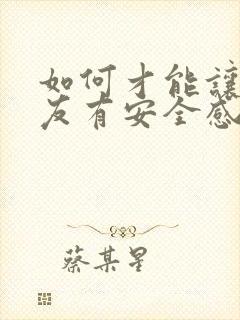 如何才能讓
友有安全感
蔡某星